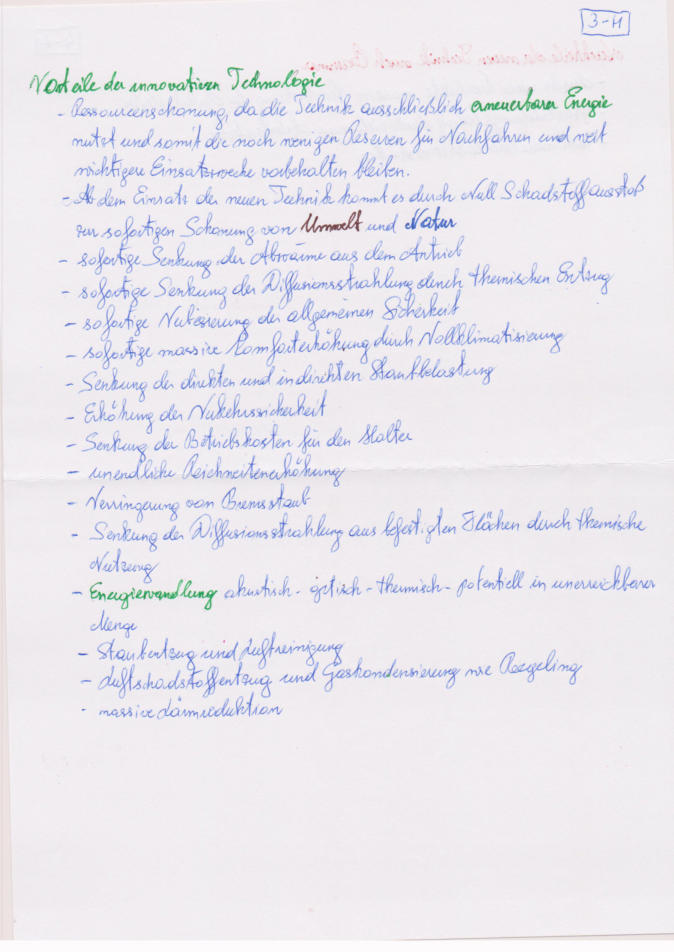 3-H
Vorteile der innovativen Technologie
- Ressourcenschonung, da die Technik ausschließlich erneuerbarer Energie
nutzt und somit die noch wenigen Reserven für Nachfahren und weit
wichtigere Einsatzzwecke vorbehalten bleiben.
- Ab dem Einsatz der neuen Technik kommt es durch Null Schadstoffausstoß
zur sofortigen Schonung von Umwelt und Natur
- sofortige Senkung der Abwärme aus dem Antrieb
- sofortige Senkung der Diffusionsstrahlung durch thermischen Entzug
- sofortige Verbesserung der allgemeinen Sicherheit
- sofortige massive Komforterhöhung durch Vollklimatisierung
- Senkung der direkten und indirekten Staubbelastung
- Erhöhung der Verkehrssicherheit
- Senkung der Betriebskosten für den Halter
- unendliche Reichweitenerhöhung
- Verringerung von Bremsstaub
- Senkung der Diffusionsstrahlung aus befestigten Flächen durch thermische
Nutzung
- Energiewandlung akustisch - optisch - thermisch - potentiell in unerreichbarer
Menge
- Staubentzug und Luftreinigung
- Luftschadstoffentzug und Gaskondensierung wie Recycling
- massive Lärmreduktion